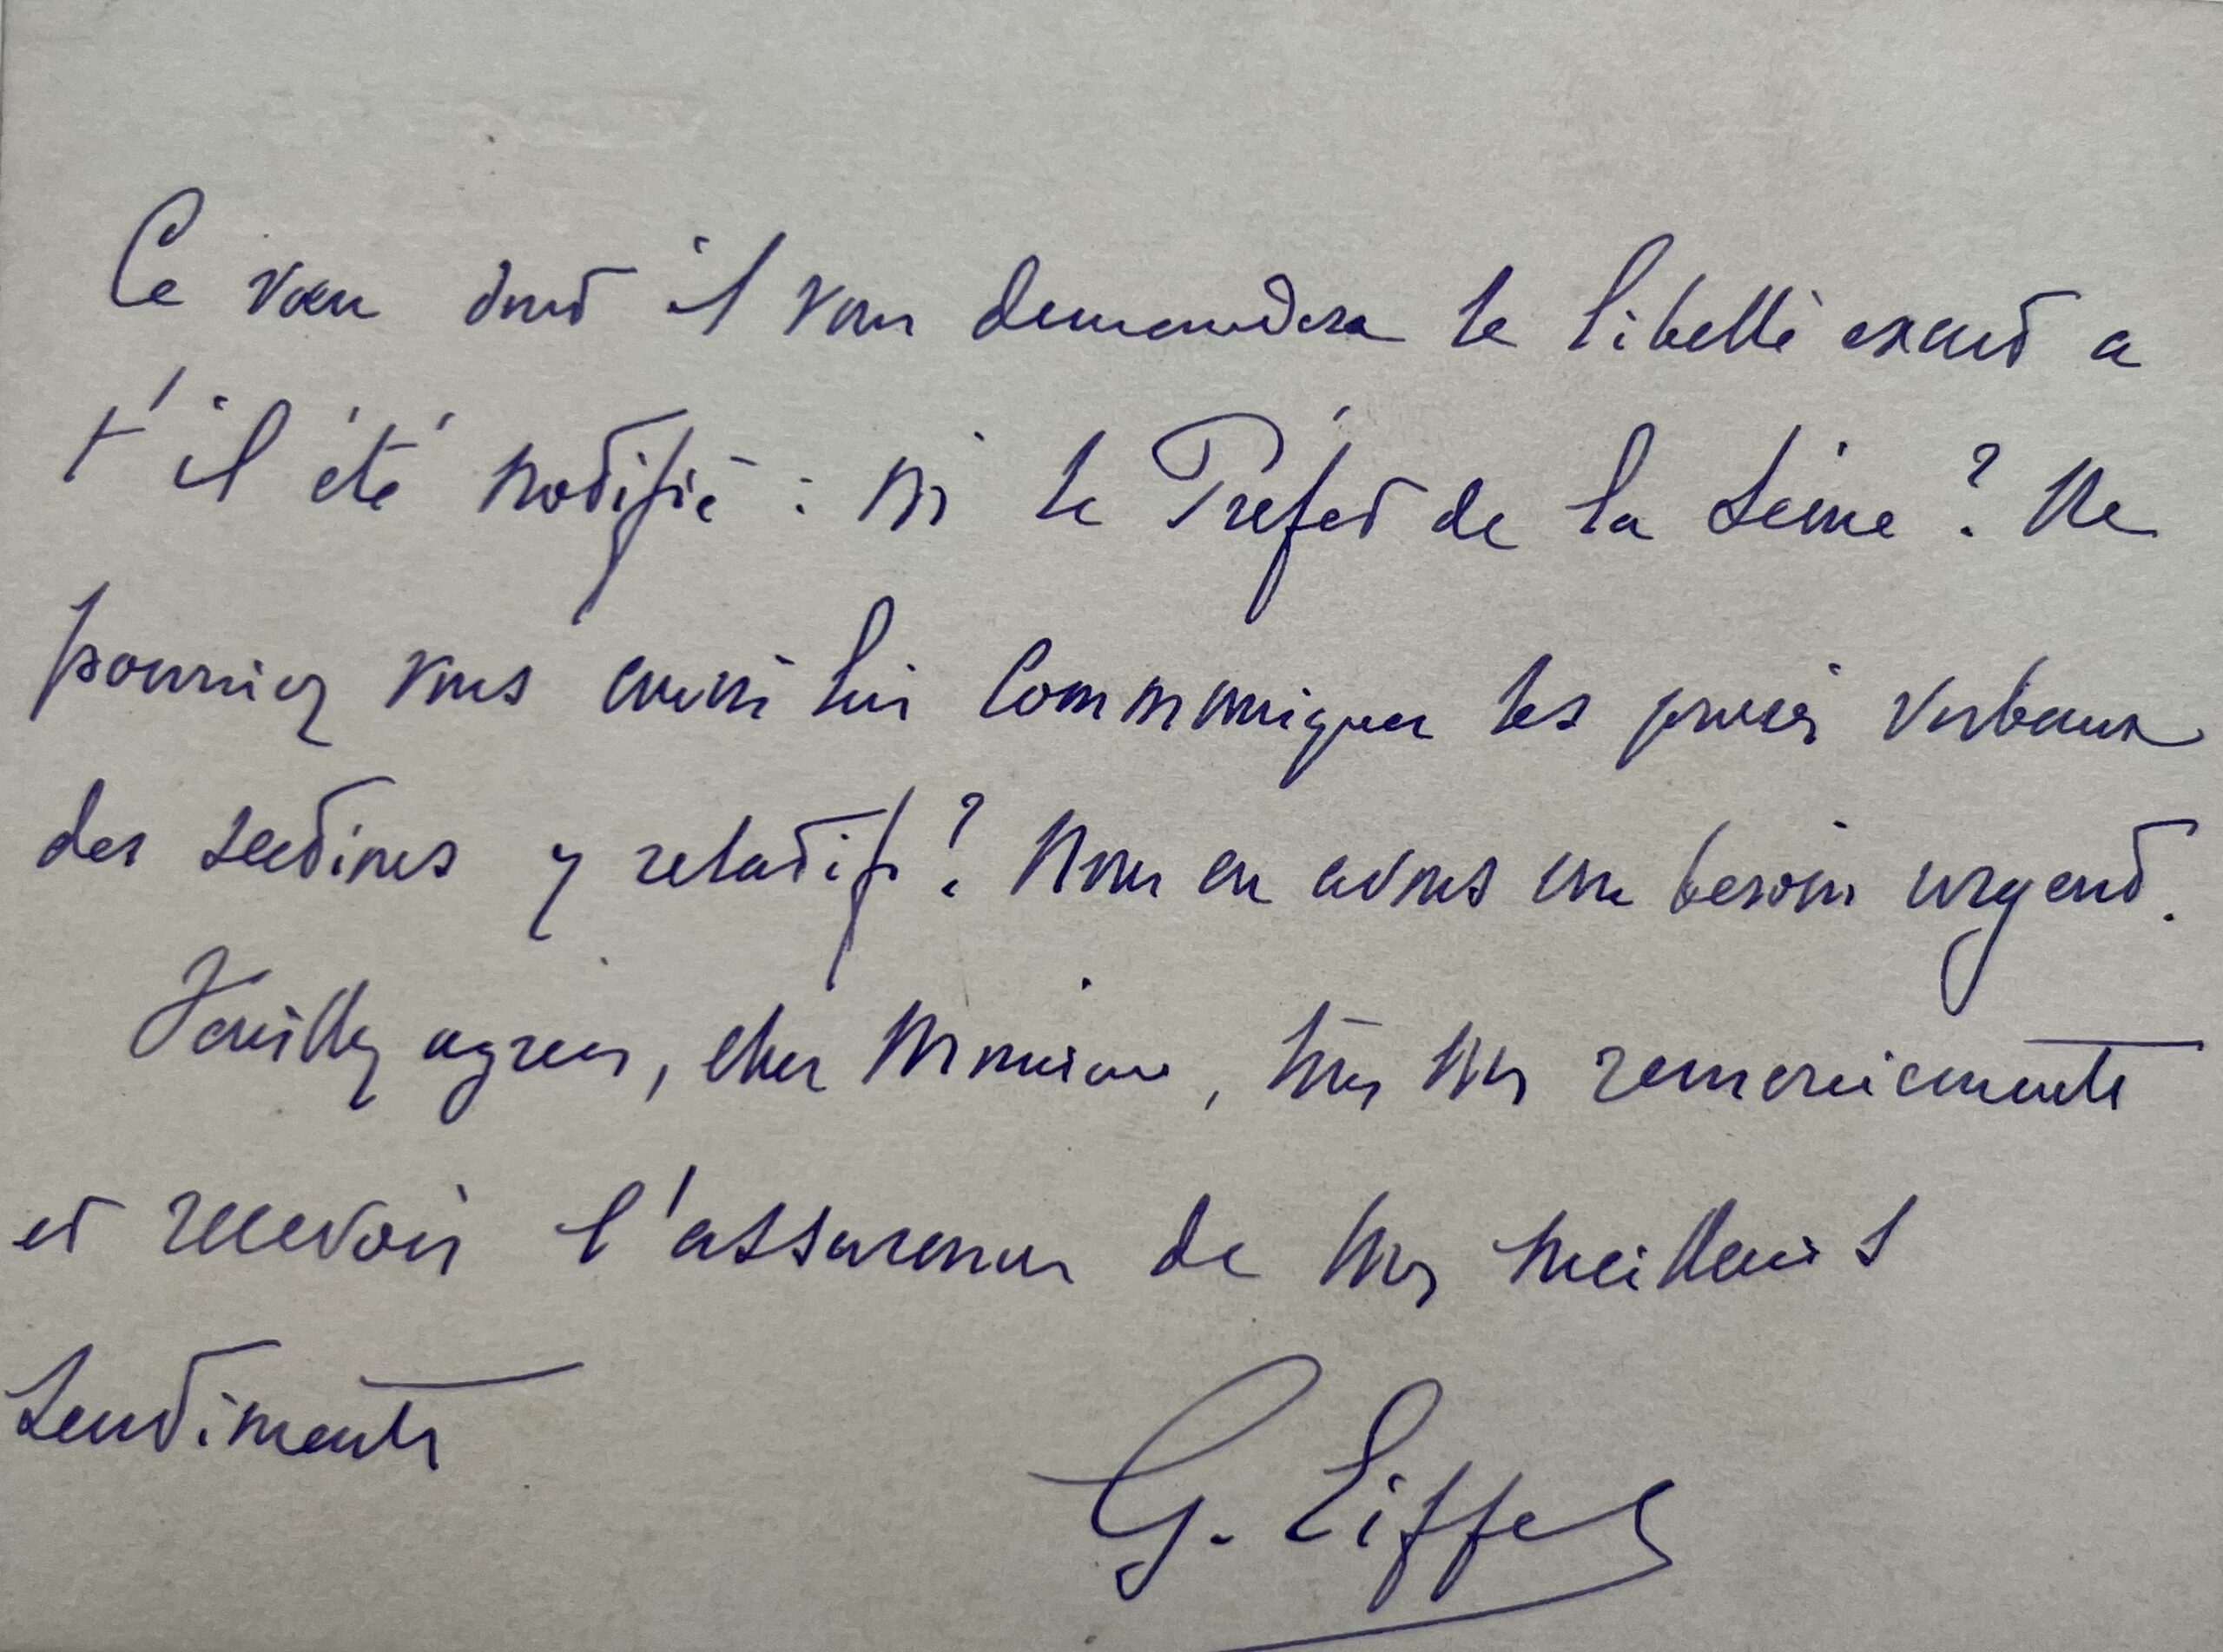 Ce vœu dont il vous demandera le libellé exact a
t'il été notifié : le Préfet de la Seine ? Ne
pourriez vous aussi lui communiquer les procès verbaux
des sections y relatifs ? Nous en avons un besoin urgent.
Veuillez agréer, cher Monsieur, tous mes remerciements
et recevoir l'assurance de mes meilleurs
sentiments
G. Eiffel